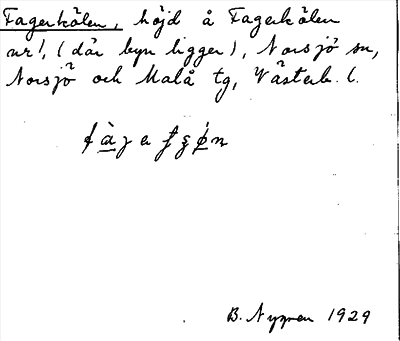 Fagerkölen, höjd å Fagerkölen
nr 1, (där byn ligger), Norsjö sn,
Norsjö och Malå tg, Västerb. l.
B. Nyman 1929